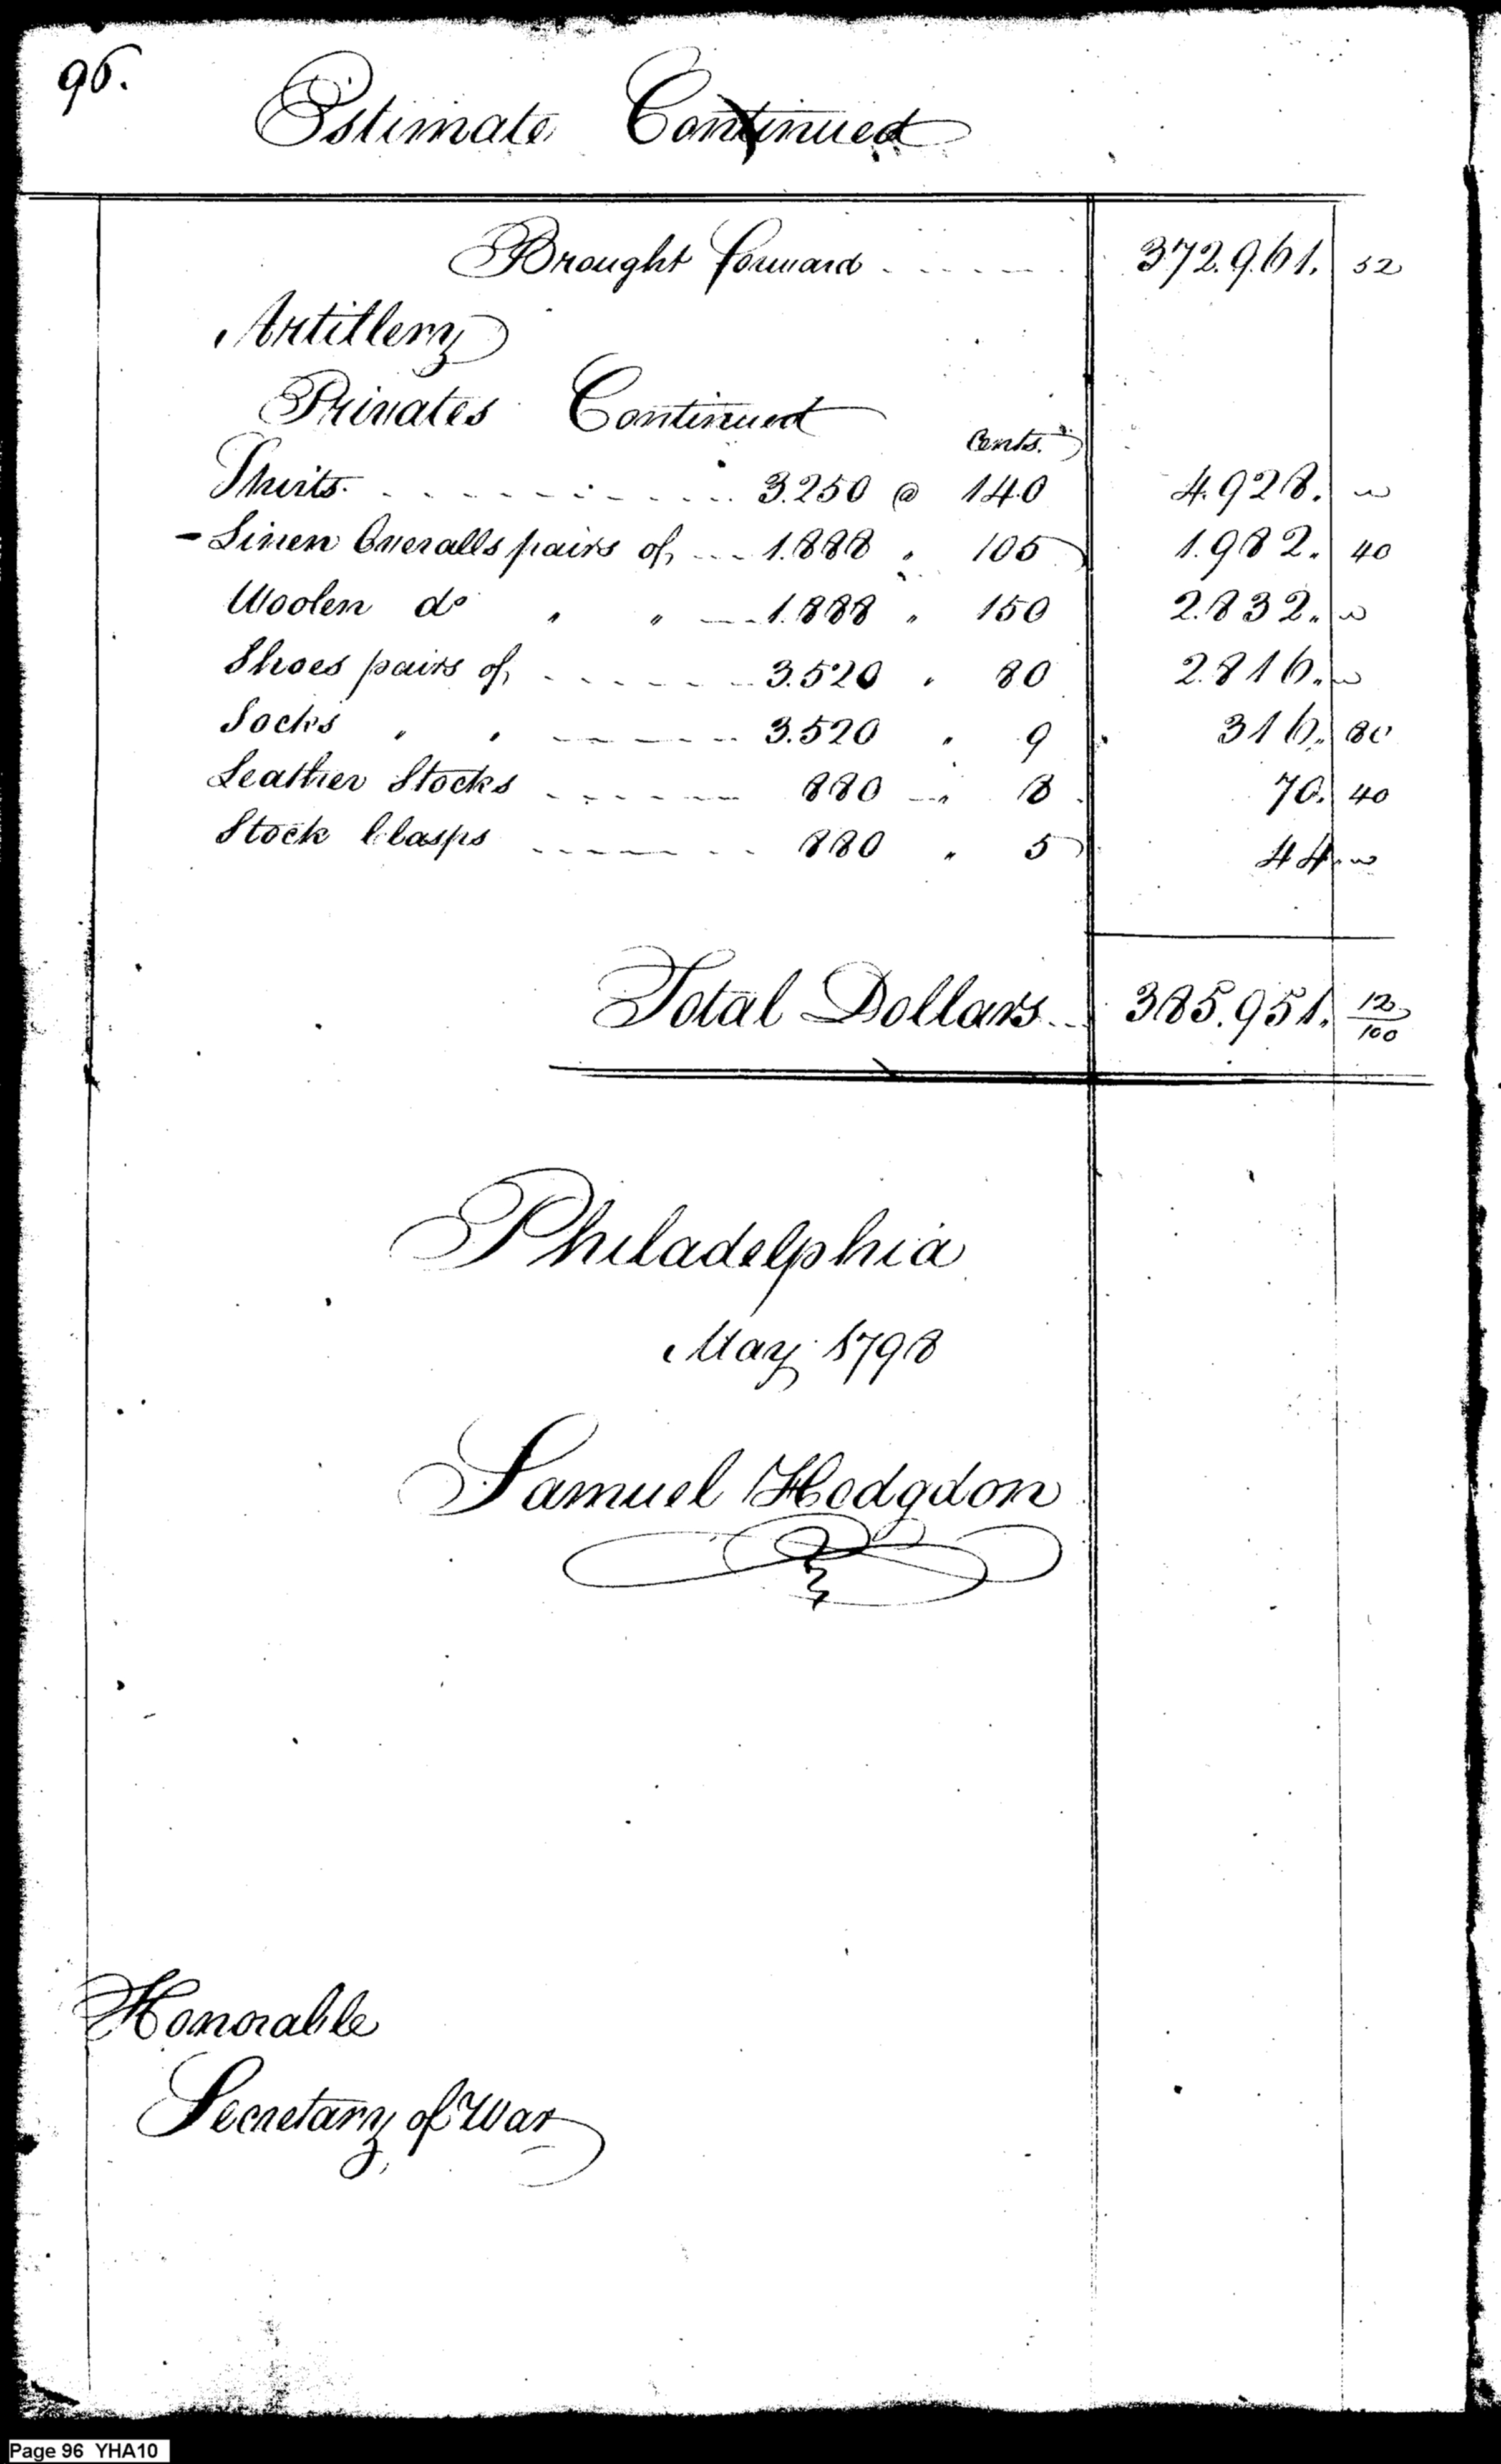 96.
Estimate Continued
Brought forward ...... 372.961. 52
Artillery
Privates Continued
Cents.
Shirts. .......... 3.250 @ 140 4.928. "
- Linen Overalls pairs of, ... 1.888 " 105 1.982. 40
Woolen do " " ... 1.888 " 150 2.832. "
Shoes pairs of, ....... 3.520 " 80 2.816. "
Socks " " ....... 3.520 " 9 316. 80
Leather Stocks ...... 880 " 8 70. 40
Stock Clasps ....... 880 " 5 44. "
Total Dollars... 385.951. 12/100
Philadelphia
May 1798
Samuel Hodgdon
Honorable
Secretary of War
Page 96 YHA10